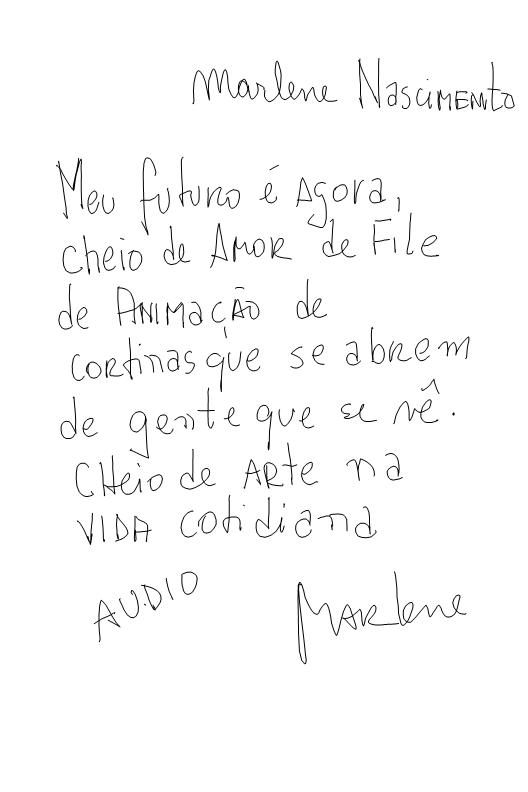 Marlene Nascimento
Meu futuro é agora,
cheio de Amor de File
de Animação de
cortinas que se abrem
de gente que se vê.
CHeio de ARTE na
VIDA cotidiana
AUDIO
Marlene